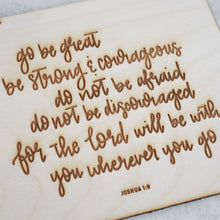 go be great
be strong & courageous
do not be afraid
do not be discouraged
for the lord will be with
you wherever you go
JOSHUA 1:9